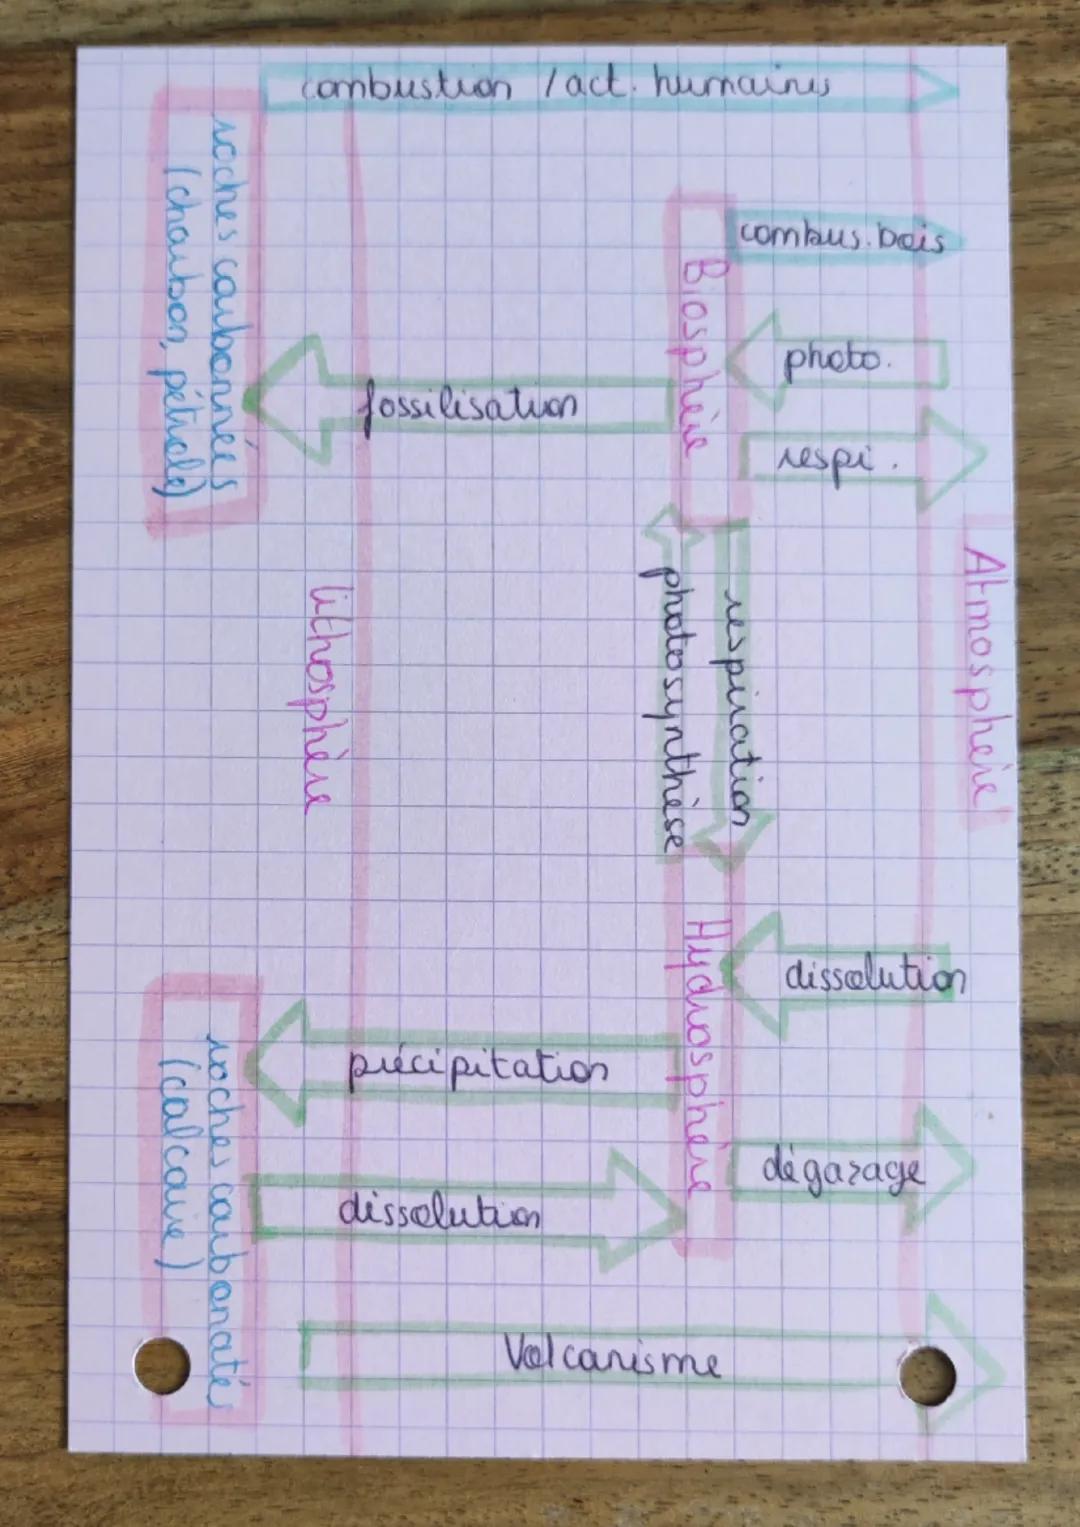 combustion / act. humaines
combus. bois
photo.
respi.
fossilisation
Biosphère
roches carbonnées
(charbon, pétrole)
Atmosphère
respiration
photosynthèse
lithosphère
dissolution
Hydrosphère
précipitation
dégazage
dissolution
roches carbonatés
(calcaire)
Volcanisme